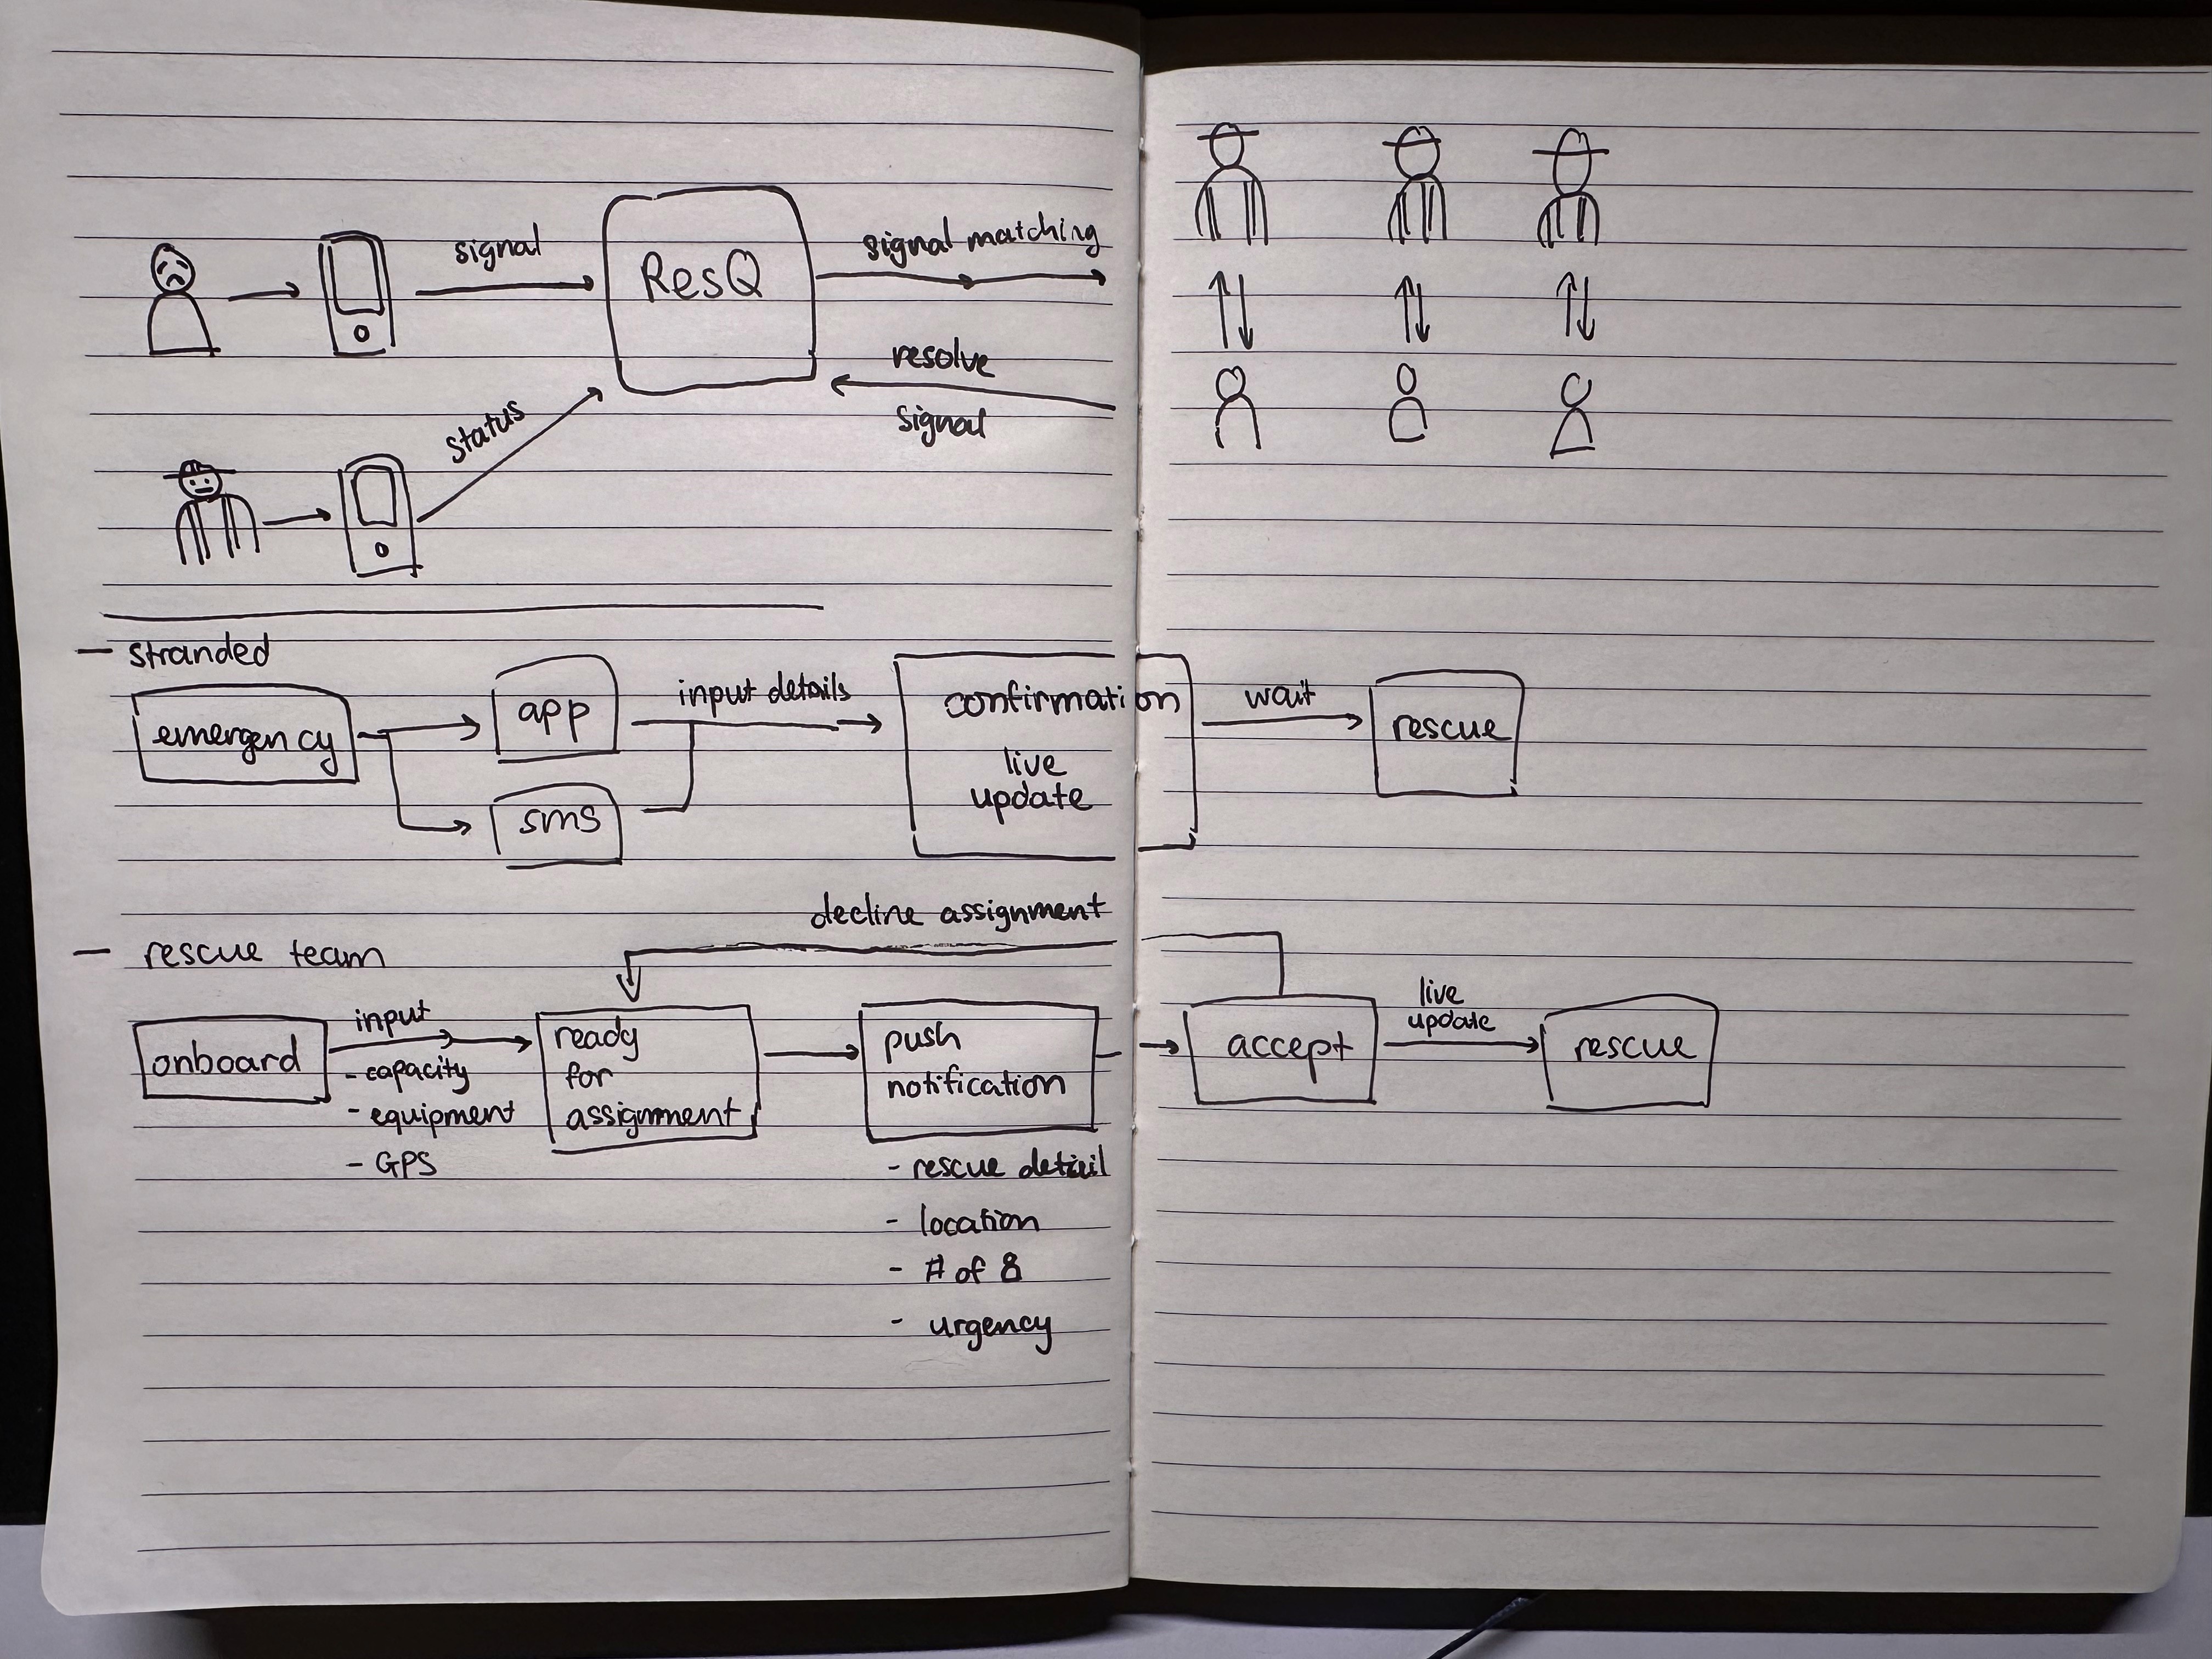 signal
ResQ
signal matching
resolve
signal
status
- stranded
emergency
app
sms
input details
confirmation
live
update
wait
rescue
decline assignment
- rescue team
onboard
input
- capacity
- equipment
- GPS
ready
for
assignment
push
notification
- rescue detail
- location
- # of
- urgency
accept
live
update
rescue